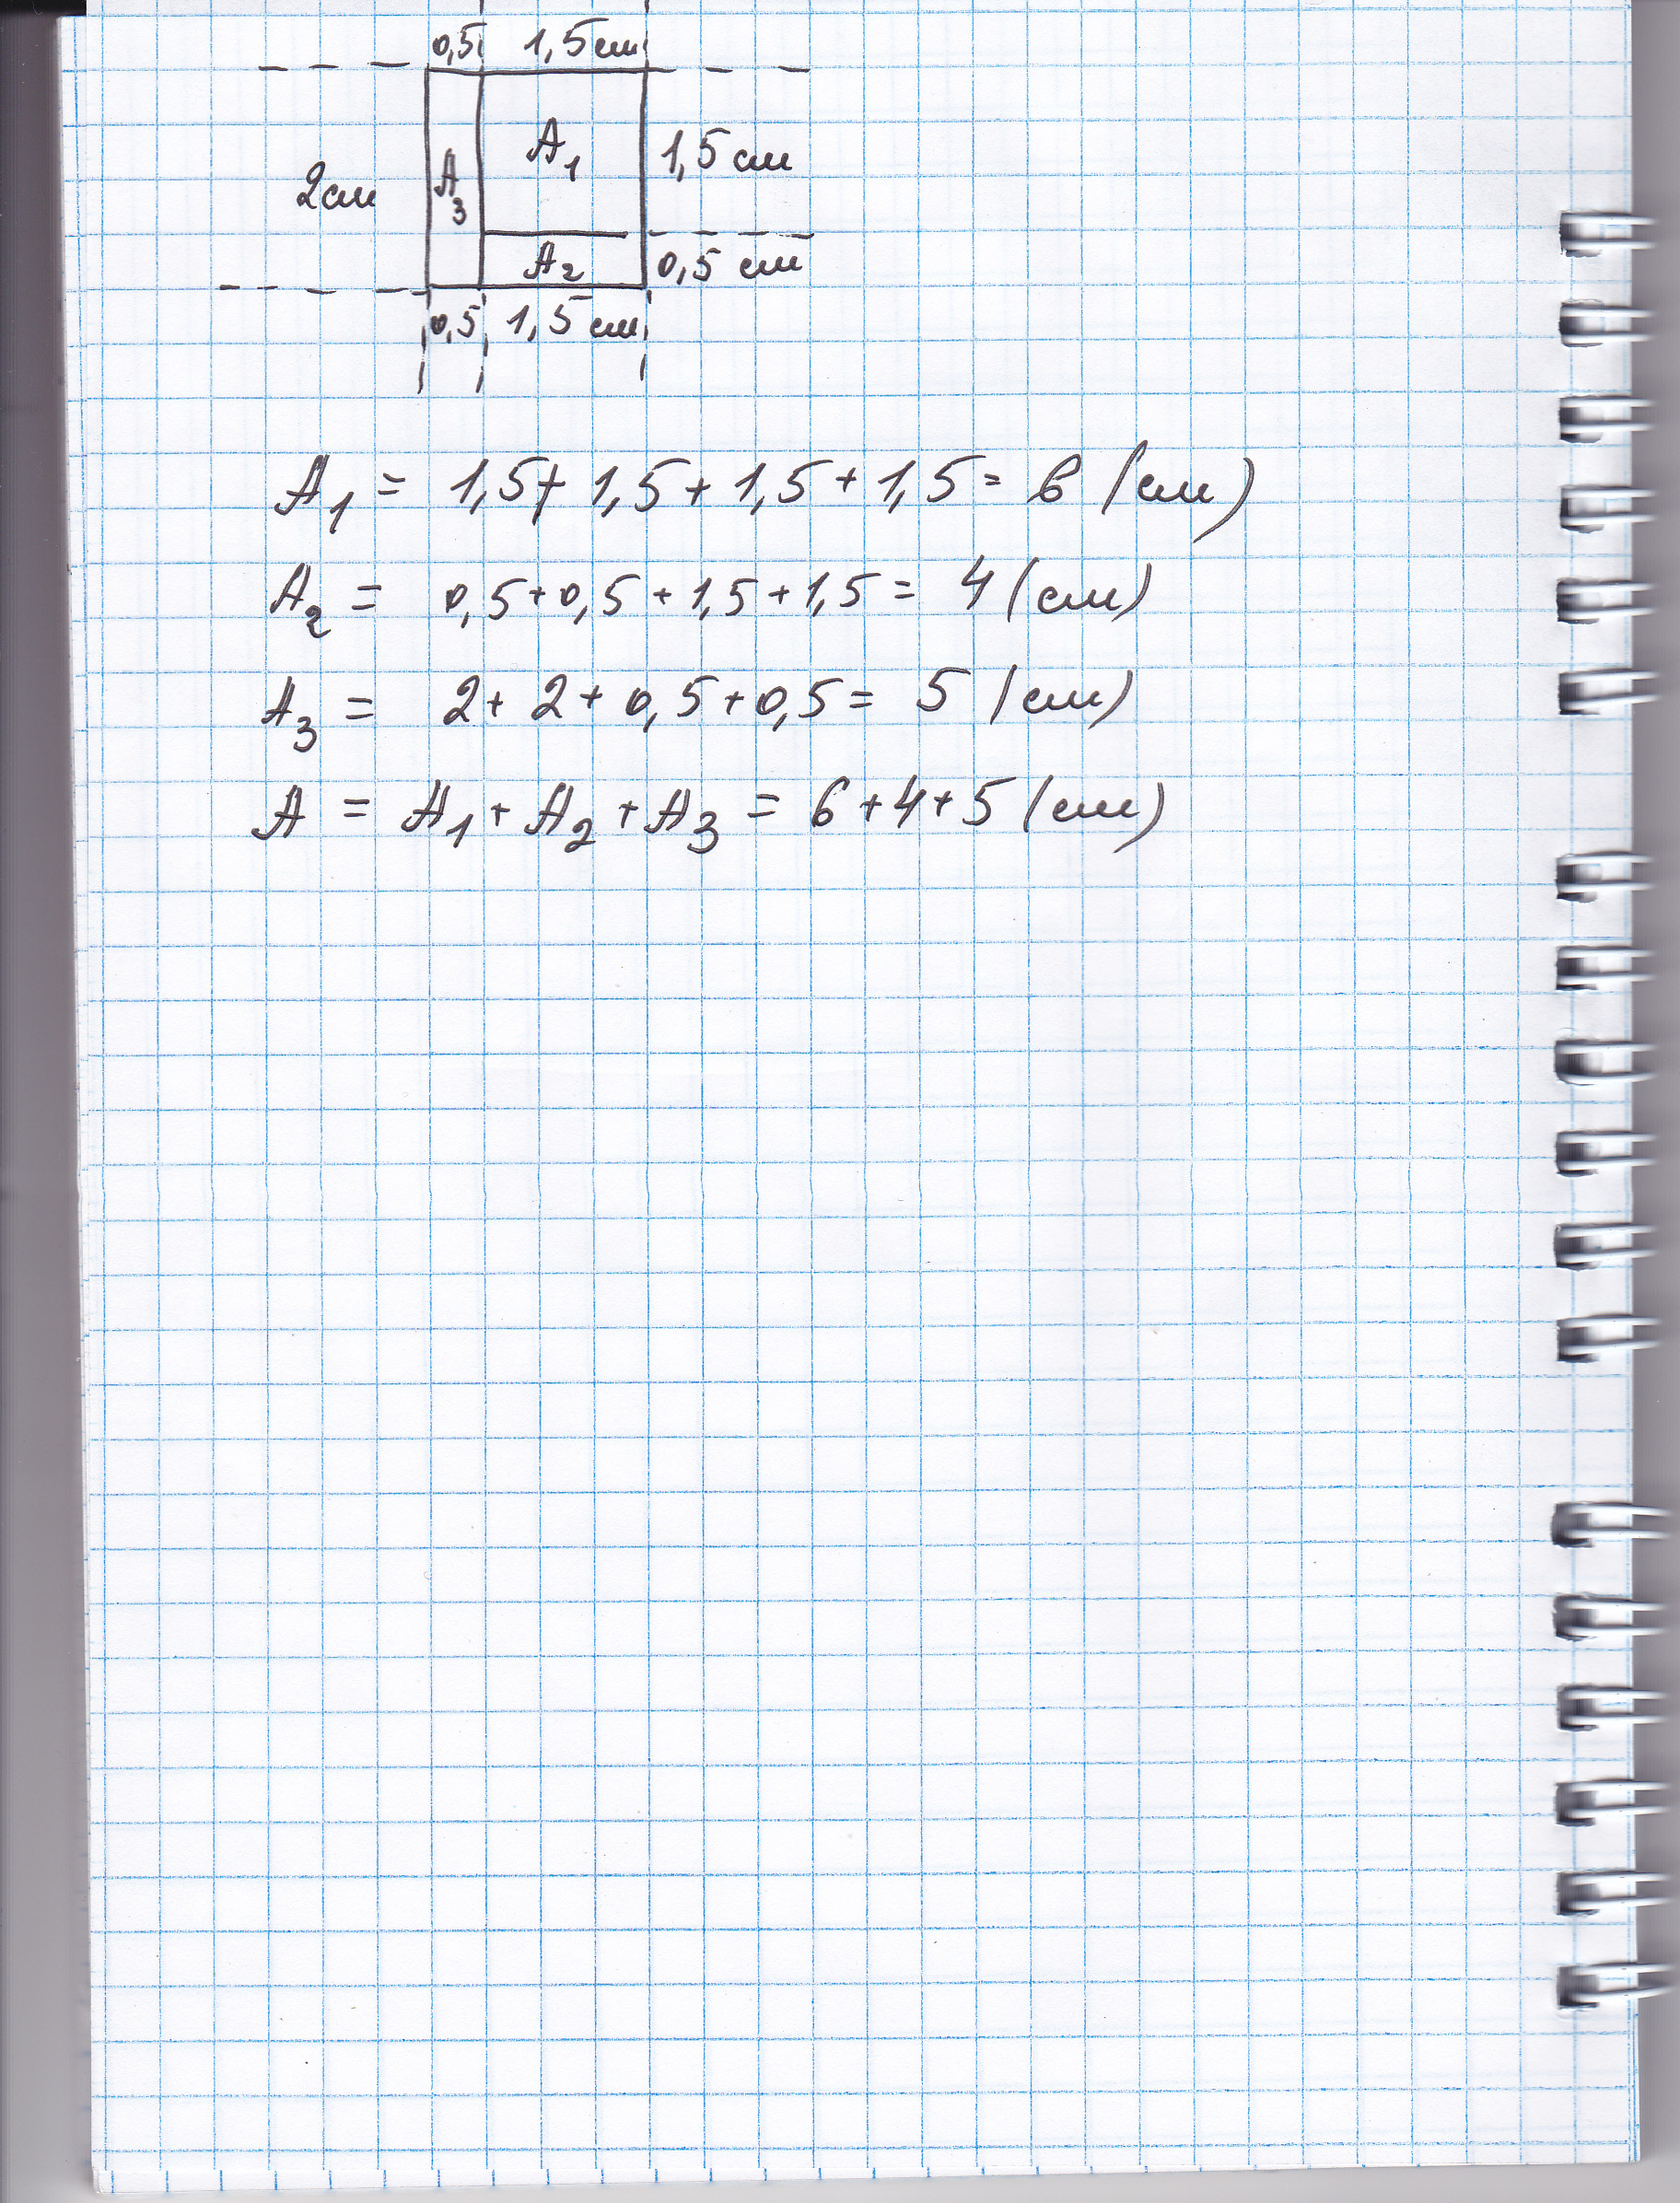 0,5 1,5 см
A₁ 1,5 см
2 см A₃
A₂ 0,5 см
0,5 1,5 см
A₁ = 1,5 + 1,5 + 1,5 + 1,5 = 6 (см)
A₂ = 0,5 + 0,5 + 1,5 + 1,5 = 4 (см)
A₃ = 2 + 2 + 0,5 + 0,5 = 5 (см)
A = A₁ + A₂ + A₃ = 6 + 4 + 5 (см)